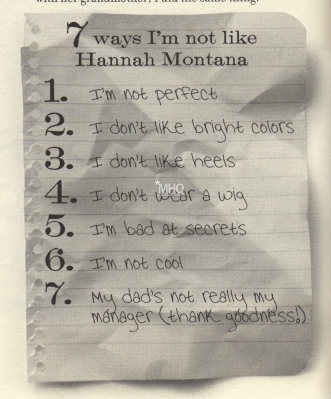 with her grandmother, I did the same thing.
7 ways I'm not like
Hannah Montana
1. I'm not perfect
2. I don't like bright colors
3. I don't like heels
4. I don't wear a wig
MHO
5. I'm bad at secrets
6. I'm not cool
7. My dad's not really my
manager (thank goodness!)